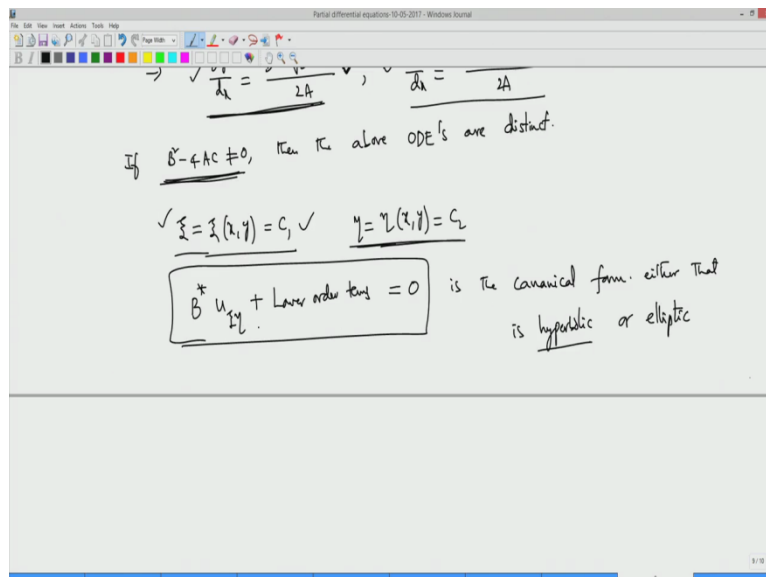 Partial differential equations-10-05-2017 - Windows Journal
File Edit View Insert Actions Tools Help
Page Width
B I
dx = 2A , dx = 2A
If B²-4AC ≠0, then the above ODE's are distinct.
✓ ξ = ξ(x,y) = C₁ ✓ η = η(x,y) = C₂
B* u_ξη + Lower order terms = 0 is the canonical form. either that
is hyperbolic or elliptic
9/10